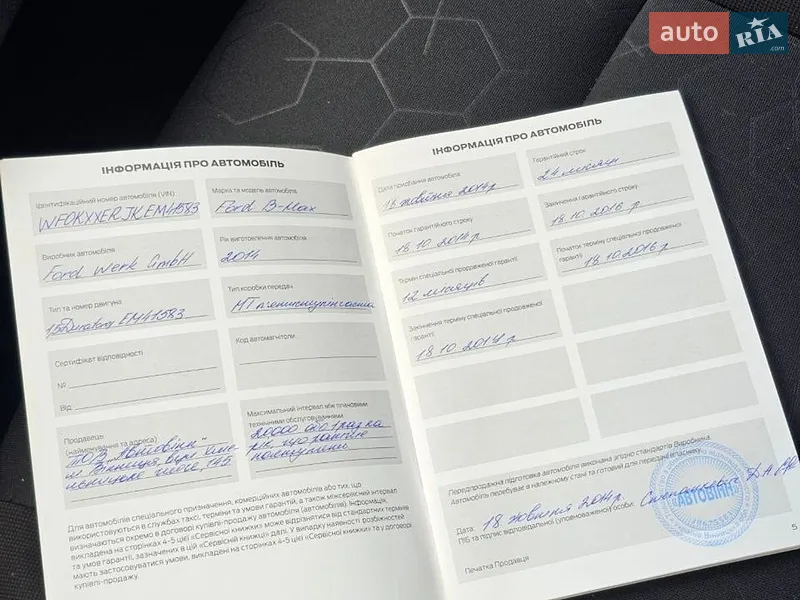 auto RIA .com
ІНФОРМАЦІЯ ПРО АВТОМОБІЛЬ
Ідентифікаційний номер автомобіля (VIN)
WF0KXXERJKEM41583
Марка та модель автомобіля
Ford B-Max
Виробник автомобіля
Ford Werk GmbH
Рік виготовлення автомобіля
2014
Тип та номер двигуна
EM41583
Тип коробки передач
МТ
Сертифікат відповідності
№
Від
Код автомагнітоли
Продавець
(найменування та адреса)
ТОВ "Автовінн"
м. Вінниця, вул.
шосе, 145
Максимальний інтервал між плановими
технічними обслуговуваннями
20000 або 1 раз на
рік що раніше
наступить
Для автомобілів спеціального призначення, комерційних автомобілів або тих, що
використовуються в службах таксі, терміни та умови гарантії, а також міжсервісний інтервал
визначаються окремо в договорі купівлі-продажу автомобіля (автомобілів). Інформація,
викладена на сторінках 4-5 цієї «Сервісної книжки» може відрізнятися від стандартних термінів
та умов гарантії, зазначених в цій «Сервісній книжці» далі. У випадку наявності розбіжностей
мають застосовуватися умови, викладені на сторінках 4-5 цієї «Сервісної книжки» та у договорі
купівлі-продажу.
ІНФОРМАЦІЯ ПРО АВТОМОБІЛЬ
Дата придбання автомобіля
18 жовтня 2014р
Гарантійний строк
24 місяці
Початок гарантійного строку
18.10.2014 р
Закінчення гарантійного строку
18.10.2016 р.
Термін спеціальної продовженої гарантії
12 місяців
Початок терміну спеціальної продовженої
гарантії
19.10.2016 р.
Закінчення терміну спеціальної продовженої
гарантії
18.10.2017 р.
Передпродажна підготовка автомобіля виконана згідно стандартів Виробника.
Автомобіль перебуває в належному стані та готовий для передачі власнику.
Дата: 18 жовтня 2014р.
ПІБ та підпис відповідальної (уповноваженої) особи:
АВТОВІНН
Печатка Продавця
5